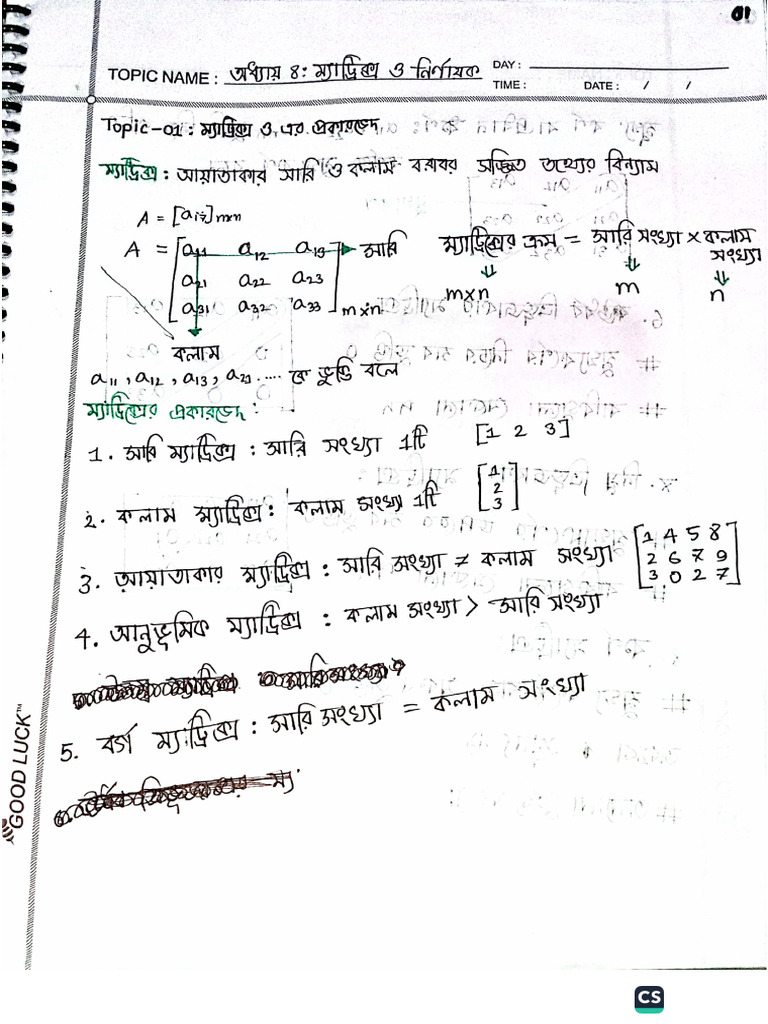 01
TOPIC NAME : অধ্যায় ৪: ম্যাট্রিক্স ও নির্ণায়ক
DAY :
TIME : DATE : / /
Topic-01 : ম্যাট্রিক্স ও এর প্রকারভেদ
ম্যাট্রিক্স : আয়াতাকার সারি ও কলাম বরাবর সজ্জিত তথ্যের বিন্যাস
A = [aij] m×n
A = [a11 a12 a13 → সারি
a21 a22 a23
a31 a32 a33] m×n
কলাম
ম্যাট্রিক্সের ক্রম = সারি সংখ্যা × কলাম সংখ্যা
⇓ ⇓ ⇓
m×n m n
a11, a12, a13, a21 .... কে ভুক্তি বলে
ম্যাট্রিক্সের প্রকারভেদ :
1. সারি ম্যাট্রিক্স : সারি সংখ্যা 1টি [1 2 3]
2. কলাম ম্যাট্রিক্স : কলাম সংখ্যা 1টি [1
2
3]
3. আয়াতাকার ম্যাট্রিক্স : সারি সংখ্যা ≠ কলাম সংখ্যা [1 4 5 8
2 6 7 9
3 0 2 7]
4. আনুভূমিক ম্যাট্রিক্স : কলাম সংখ্যা > সারি সংখ্যা
5. বর্গ ম্যাট্রিক্স : সারি সংখ্যা = কলাম সংখ্যা
GOOD LUCK™
CS